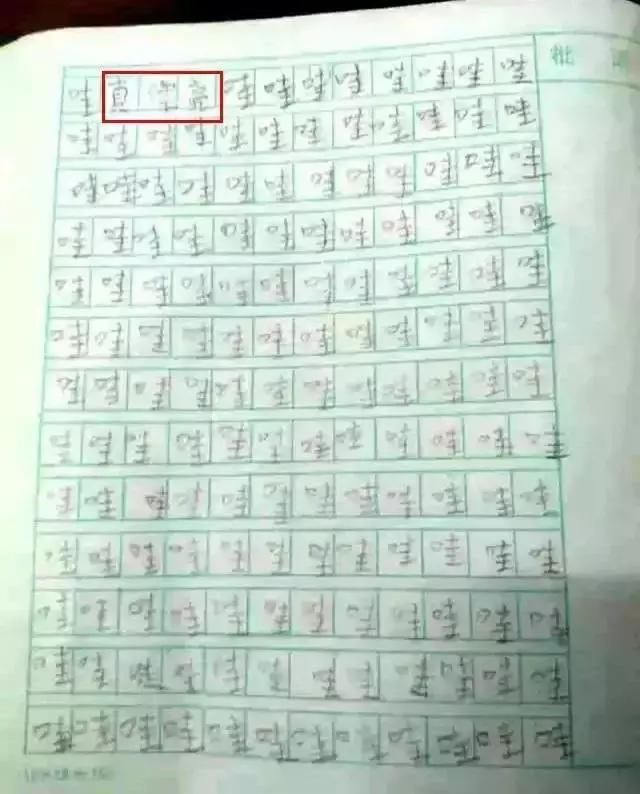 哇真亮哇哇哇哇哇哇哇哇
批
哇哇哇哇哇哇哇哇哇哇哇哇
哇哇哇哇哇哇哇哇哇哇哇哇
哇哇哇哇哇哇哇哇哇哇哇哇
哇哇哇哇哇哇哇哇哇哇哇哇
哇哇哇哇哇哇哇哇哇哇哇哇
哇哇哇哇哇哇哇哇哇哇哇哇
哇哇哇哇哇哇哇哇哇哇哇哇
哇哇哇哇哇哇哇哇哇哇哇哇
哇哇哇哇哇哇哇哇哇哇哇哇
哇哇哇哇哇哇哇哇哇哇哇哇
哇哇哇哇哇哇哇哇哇哇哇哇
哇哇哇哇哇哇哇哇哇哇哇哇